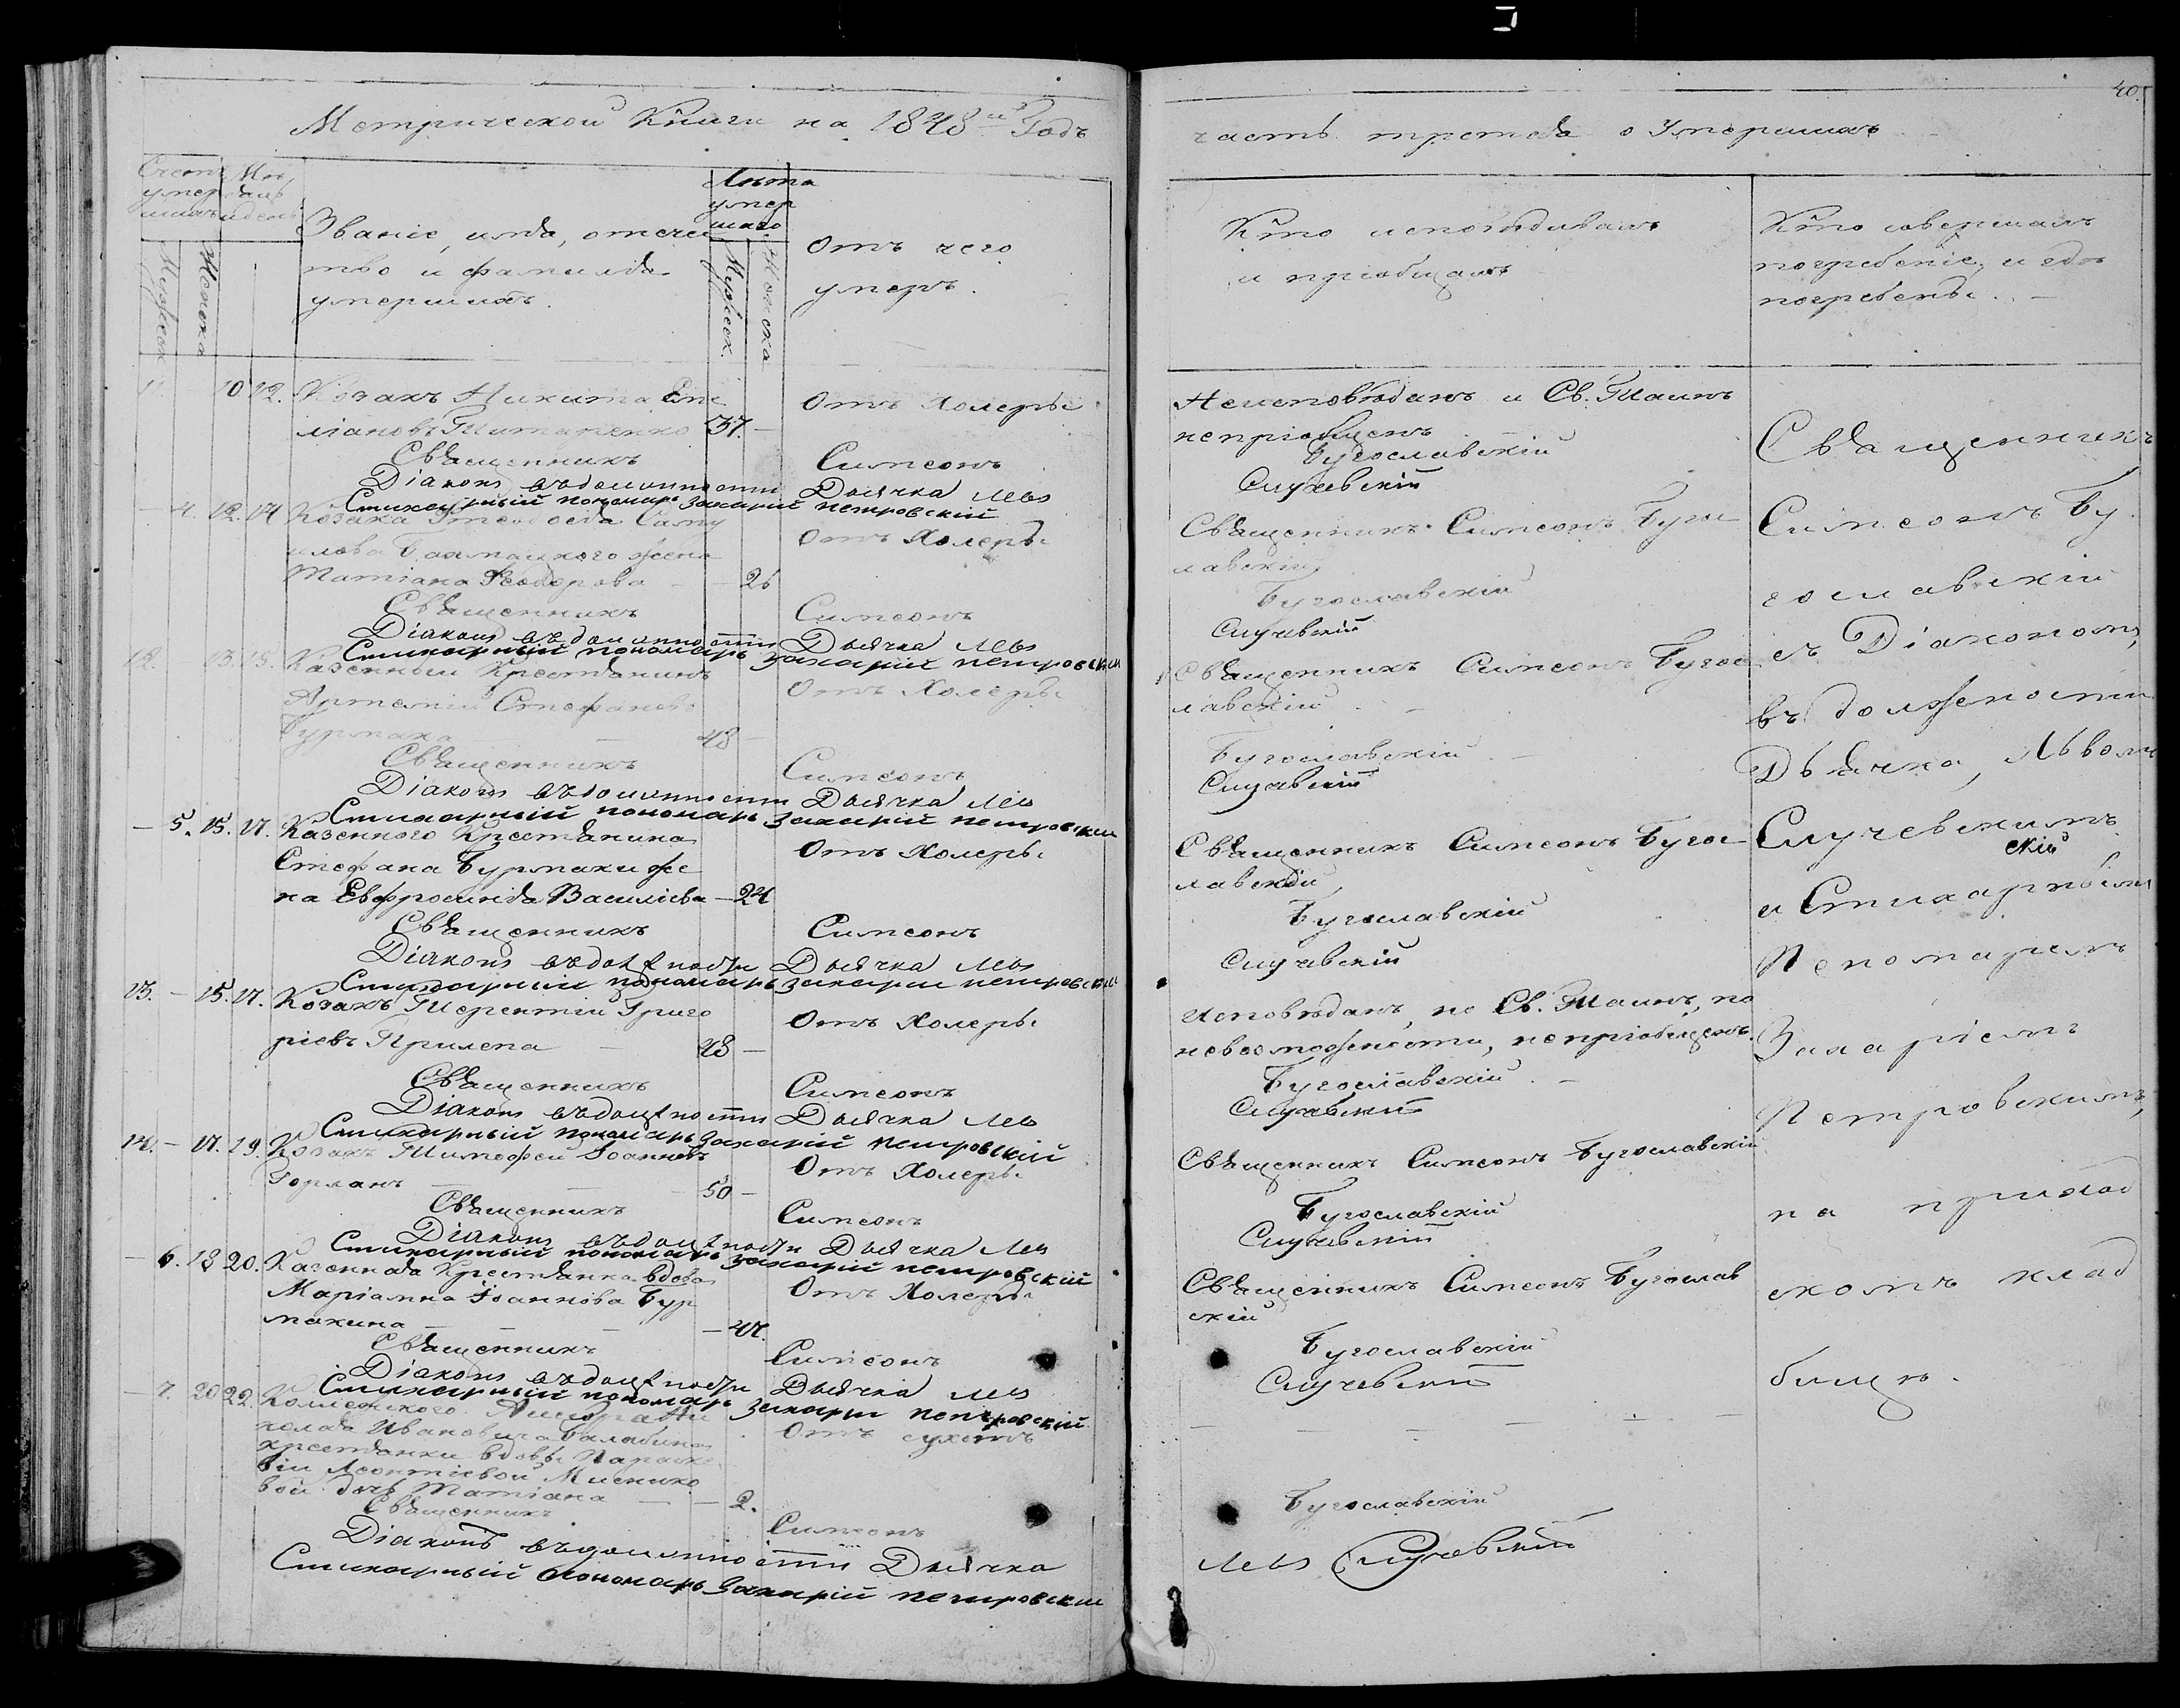 Метрической Книги на 1848й Годъ
Счетъ умершихъ
Мужеск
Женска
Мѣсяцъ и день
Званіе, имя, отечес
тво и фамилія
умершихъ.
Лѣта
умер
шаго
Мужеск.
Женска
Отъ чего
умеръ.
11. 10 12. Козакъ Никита Еме
ліановъ Титаренко 37. — Отъ Холеры
Священникъ Симеонъ
Діаконъ въ должности Дьячка Левъ
Стихарный пономарь Захарій Петровскій
— 4. 12. 14 Козака Ѳеодосія Саму
илова Бахмацкого жена Отъ Холеры
Татіана Ѳеодорова — — 26
Священникъ Симеонъ
Діаконъ въ должности Дьячка Левъ
Стихарный пономарь Захарій Петровскій
12. 13. 15. Казенный Крестянинъ
Артемій Стефановъ Отъ Холеры
Бурмака — 48 —
Священникъ Симеонъ
Діаконъ въ должности Дьячка Левъ
Стихарный пономарь Захарій Петровскій
— 5. 15. 17. Казенного Крестянина
Стефана Бурмаки же Отъ Холеры
на Евфросинія Василіева — 24
Священникъ Симеонъ
Діаконъ въ должности Дьячка Левъ
Стихарный пономарь Захарій Петровскій
13. — 15. 17. Козакъ Терентій Григо
ріевъ Прилепа — 48 — Отъ Холеры
Священникъ Симеонъ
Діаконъ въ должности Дьячка Левъ
Стихарный пономарь Захарій Петровскій
14. — 17. 19. Козакъ Тимофей Іоанновъ
Горланъ — — 50 — Отъ Холеры
Священникъ Симеонъ
Діаконъ въ должности Дьячка Левъ
Стихарный пономарь Захарій Петровскій
— 6. 18 20. Казенная Крестянка вдова
Маріамна Іоаннова Бур Отъ Холеры
макина — — — 47.
Священникъ Симеонъ
Діаконъ въ должности Дьячка Левъ
Стихарный пономарь Захарій Петровскій
— 7. 20 22. Ни
колая Ивановича Балабина Отъ сухотъ
крестянки вдовы Параске
віи Леонтіевой
вой дочь Татіана — — 2.
Священникъ Симеонъ
Діаконъ въ должности Дьячка
Стихарный Пономарь Захарій Петровскій
40.
часть третья о Умершихъ
Кто исповѣдивалъ
и пріобщалъ
Кто совершалъ
погребеніе и гдѣ
погребены. —
Неисповѣданъ и Св. Таинъ
непріобщенъ
Бугославскій
Случевскій
Священникъ Симеонъ Бугос
лавскій
Бугославскій
Случевскій
Священникъ Симеонъ Бугос
лавскій
Бугославскій
Случевскій
Священникъ Симеонъ Бугос
лавскій,
Бугославскій
Случевскій
Исповѣданъ, но Св. Таинъ, по
невозможности, непріобщенъ.
Бугославскій
Случевскій
Священникъ Симеонъ Бугославскій
Бугославскій
Случевскій
Священникъ Симеонъ Бугослав
скій
Бугославскій
Случевскій
— — — —
Бугославскій
Левъ Случевскій
Священникъ
Симеонъ Бу
гославскій
съ Діакономъ,
въ должности
Дьячка, Львомъ
Случевскимъ
скій
и Стихарнымъ
Пономаремъ
Захаріемъ
Петровскимъ,
на приход
скомъ клад
бищѣ.